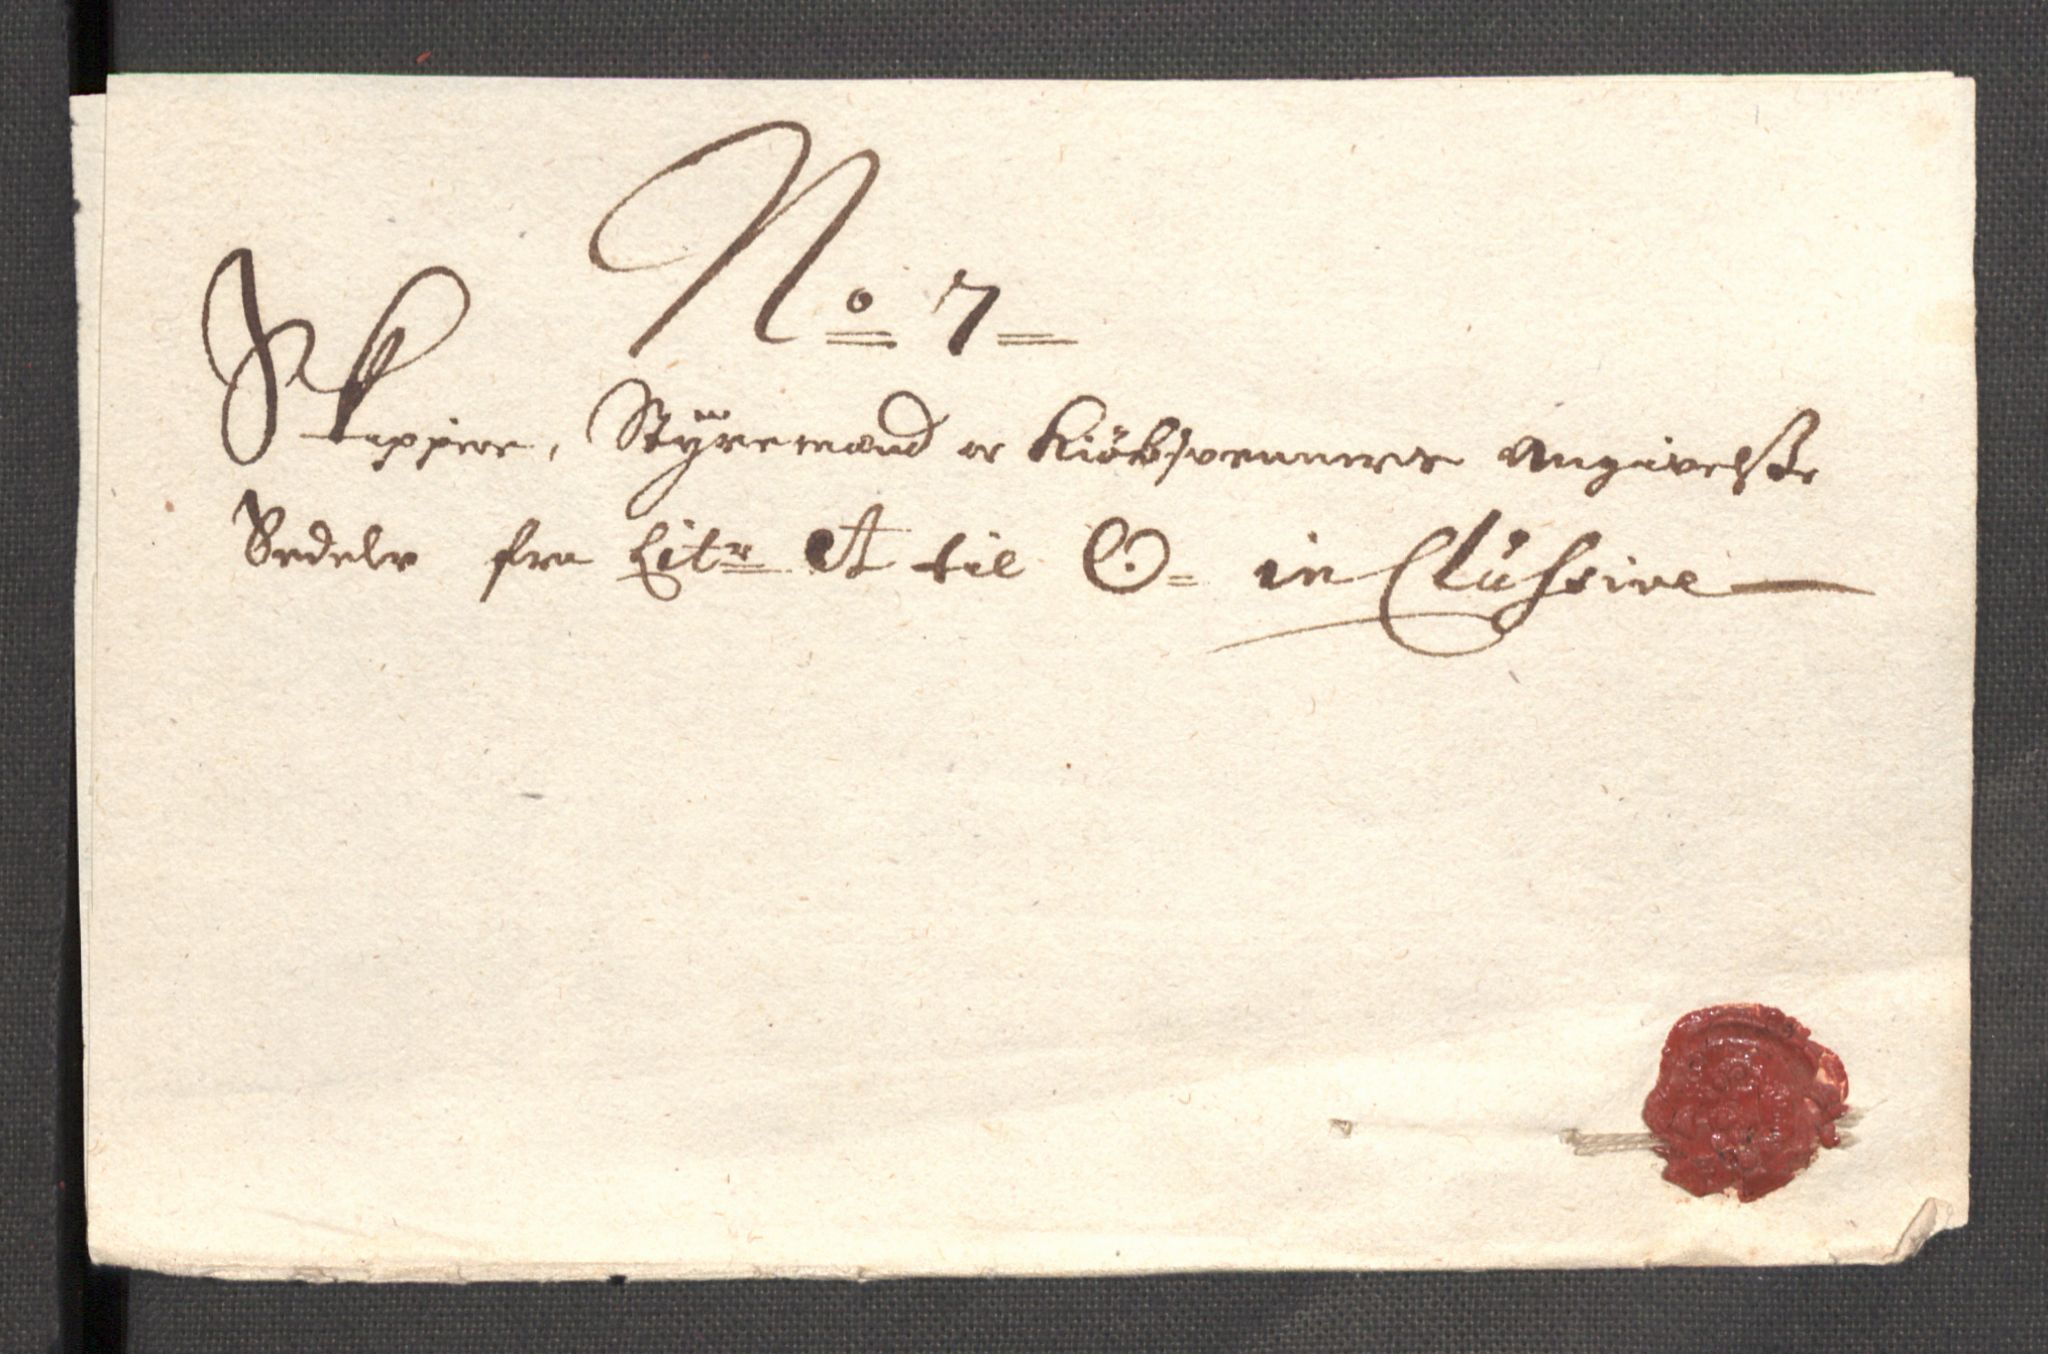 No 7
Skippere, Styremænd oc Kiøbsvenners Angivelse
Sedele fra Litr A til O inClusive